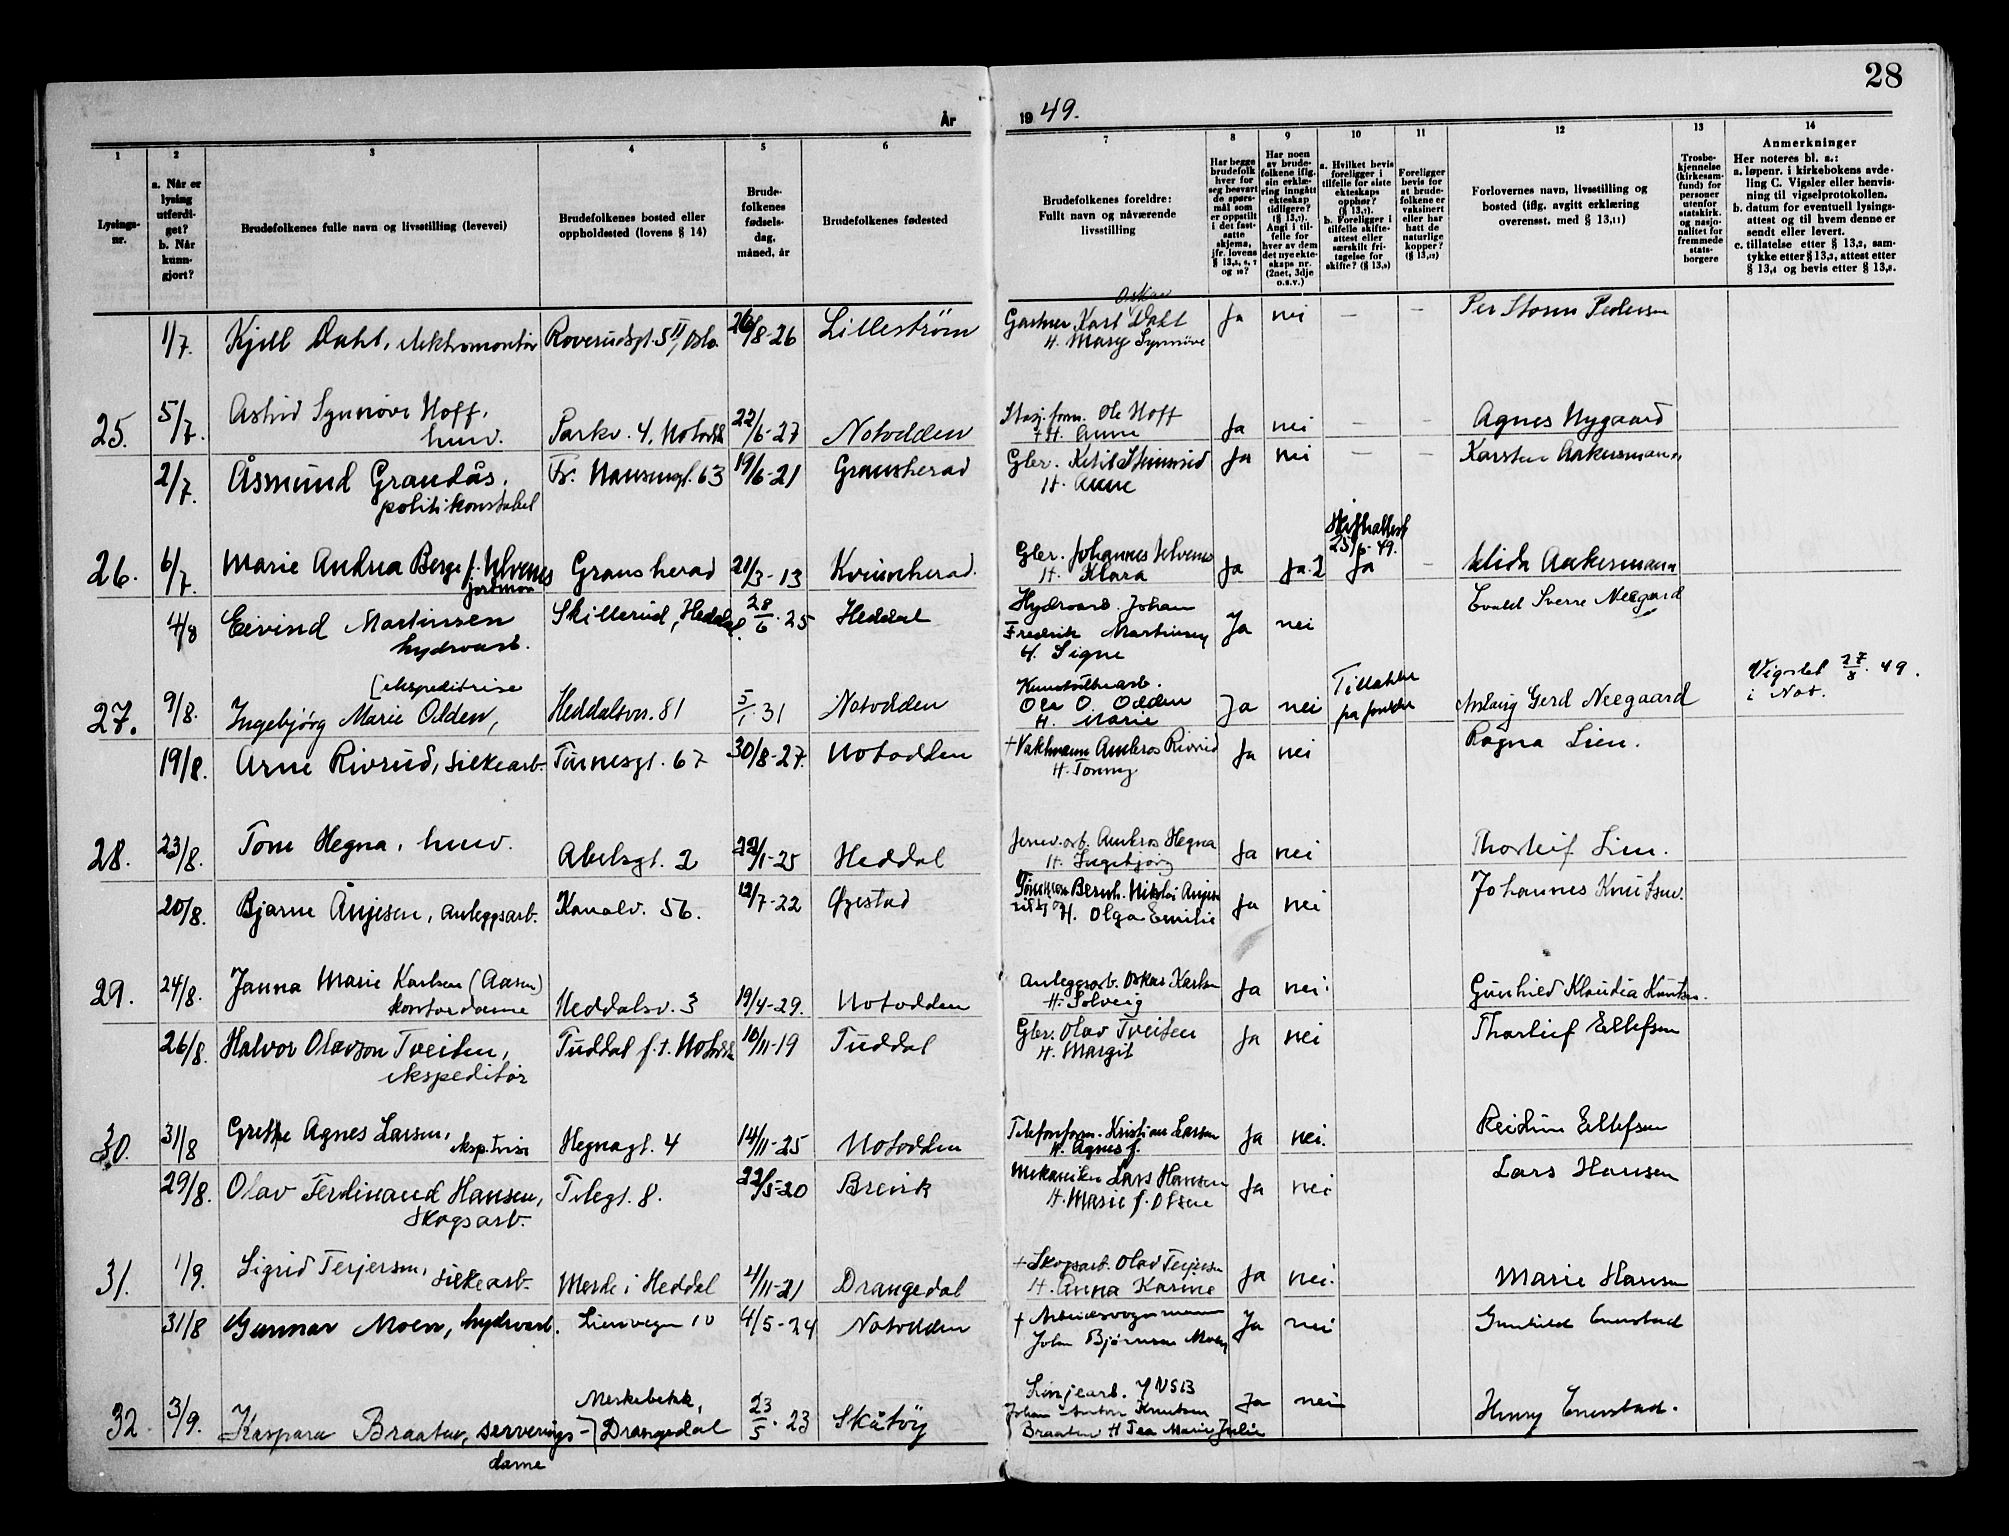 28
År
19 49.
1
2
3
4
5
6
7
8
9
10
11
12
13
14
Lysings-
nr.
a. Når er
lysing
utferdi-
get?
b. Når
kunn-
gjort?
Brudefolkenes fulle navn og livsstilling (levevei)
Brudefolkenes bosted eller
oppholdssted (lovens § 14)
Brude-
folkenes
fødsels-
dag,
måned, år
Brudefolkenes fødested
Brudefolkenes foreldre:
Fullt navn og nåværende
livsstilling
Har begge
brudefolk
hver for
seg besvart
de spørs-
mål som
er oppstilt
i det fast-
satte
skjema,
jfr. lovens
§ 13,
og 10?
Har noen
av brude-
folkene iflg.
sin erklæ-
ring inngått
ekteskap
tidligere?
Angi i til-
felle for
hver av dem
det nye ekte-
skaps nr.
(2net, 3dje
o.s.v.)
a. Hvilket bevis
foreligger i
tilfelle for siste
ekteskaps
opphør?
b. Foreligger i
tilfelle skifte-
attest eller
særskilt fri-
tagelse for
skifte? (§ 13,9)
Foreligger
bevis for
at brude-
folkene er
vaksinert
eller har
hatt de
naturlige
kopper?
(§ 13,12)
Forlovernes navn, livsstilling og
bosted (iflg. avgitt erklæring
overensst. med § 13,11)
Trosbe-
kjennelse
(kirkesam-
fund) for
personer
utenfor
statskirk.
og nasjo-
nalitet for
fremmede
stats-
borgere
Anmerkninger
Her noteres bl. a.:
a. løpenr. i kirkebokens avde-
ling C. Vigsler eller henvis-
ning til vigselprotokollen.
b. datum for eventuell lysings-
attest og til hvem denne er
sendt eller levert.
c. tillatelse etter § 13,2, sam-
tykke etter § 13,3, attest etter
§ 13,4 og bevis etter § 13,8.
1/7. Kjell Dahl, elektromontør Roverudsgt. 5 II, Oslo 26/8-26 Lillestrøm
Oskar
Gartner Karl Dahl Ja nei — — Per Storm Pedersen
H. Mary Synnøve
25. 5/7. Astrid Synnøve Hoff, Parkv. 4, Notodd. 22/6-27 Notodden
husv.
Stasj.form. Ole Hoff Ja nei — — Agnes Nygaard
+ H. Anne
2/7. Åsmund Grandås, Fr. Nansensgt. 63 19/6-21 Gransherad
politikonstabel
Gbr. Ketil Ja nei — — Karsten Aakermann
H. Anne
26. 6/7. Marie Andrea Berge f. Ulvenes Gransherad 21/3-13 Kvinnherad.
jordmor
Skifteattest
25/6-49.
Gbr. Johannes Ulvenes Ja Ja. 2 Ja — Alida Aakermann
H. Klara
4/8 Eivind Martinsen Skillerud, Heddal. 28/6-25 Heddal
hydroarb.
Hydroarb. Johan Ja nei Evald Sverre Neegaard
Fredrik Martinsen
H. Signe
27. 9/8. Ingebjørg Marie Odden, Heddalsvn. 81 5/1-31 Notodden
[ekspeditrise
Kunstsilkearb. Ja nei Tillatelse Aslaug Gerd Neegaard Vigslet 27/8. 49.
Ola O. Odden fra foreldre i Not.
H. Marie
19/8. Arne Rivrud, silkearb. Tinnesgt. 67 30/8-27. Notodden
+ Vaktmann Ambros Rivrud Ja nei Ragna Lien.
H. Tonny
28. 23/8. Tone Hegna, husv. Abelsgt. 2 22/1-25 Heddal
Jernv.arb. Ambros Hegna Ja nei Thorleif Lien.
H. Ingebjørg
20/8. Bjarne Ånjesen, anleggsarb. Kanalv. 56. 12/7-22 Øyestad
Bernh. Nikolai Ja nei Johannes Knutsen.
H. Olga Emilie
29. 24/8. Janna Marie Karlsen (Aasen) Heddalsv. 3 19/4-29. Notodden
kontordame
Anleggsarb. Oskar Karlsen Ja nei. Gunhild Klaudia Knutsen.
H. Solveig
26/8. Halvor Olavson Tveiten, Tuddal f.t. Notodd. 10/11-19 Tuddal
ekspeditør
Gbr. Olav Tveiten Ja nei Thorleif Ellefsen
H. Margit
30. 31/8 Grethe Agnes Larsen, Hegnagt. 4 14/11-25 Notodden
eksp.trise
Telefonform. Kristian Larsen Ja nei. Reidun Ellefsen
H. Agnes f.
29/8. Olav Ferdinand Hansen, Telegt. 8. 22/5-20 Brevik
skogsarb.
Mekaniker Lars Hansen Ja nei Lars Hansen
H. Marie f. Olsen
31. 1/9. Sigrid Terjersen, silkearb. Merde i Heddal 4/11-21 Drangedal
+ Skogsarb. Olav Terjersen Ja nei. Marie Hansen
H. Anna Karine
31/8 Gunnar Moen, hydroarb. Lienvegen 10 4/5-24 Notodden
+ Arbeidsvognmann Ja nei Gunhild Enerstad
John Bjørnsen Moen
32. 3/9. Kaspara Braaten, serverings-
dame
Merkebekk,
Drangedal
23/5-23 Skåtøy
Linjearb. v/ NSB Ja nei Henry Enerstad.
Johan Anton Knutsen
Braaten H Tea Marie Julie